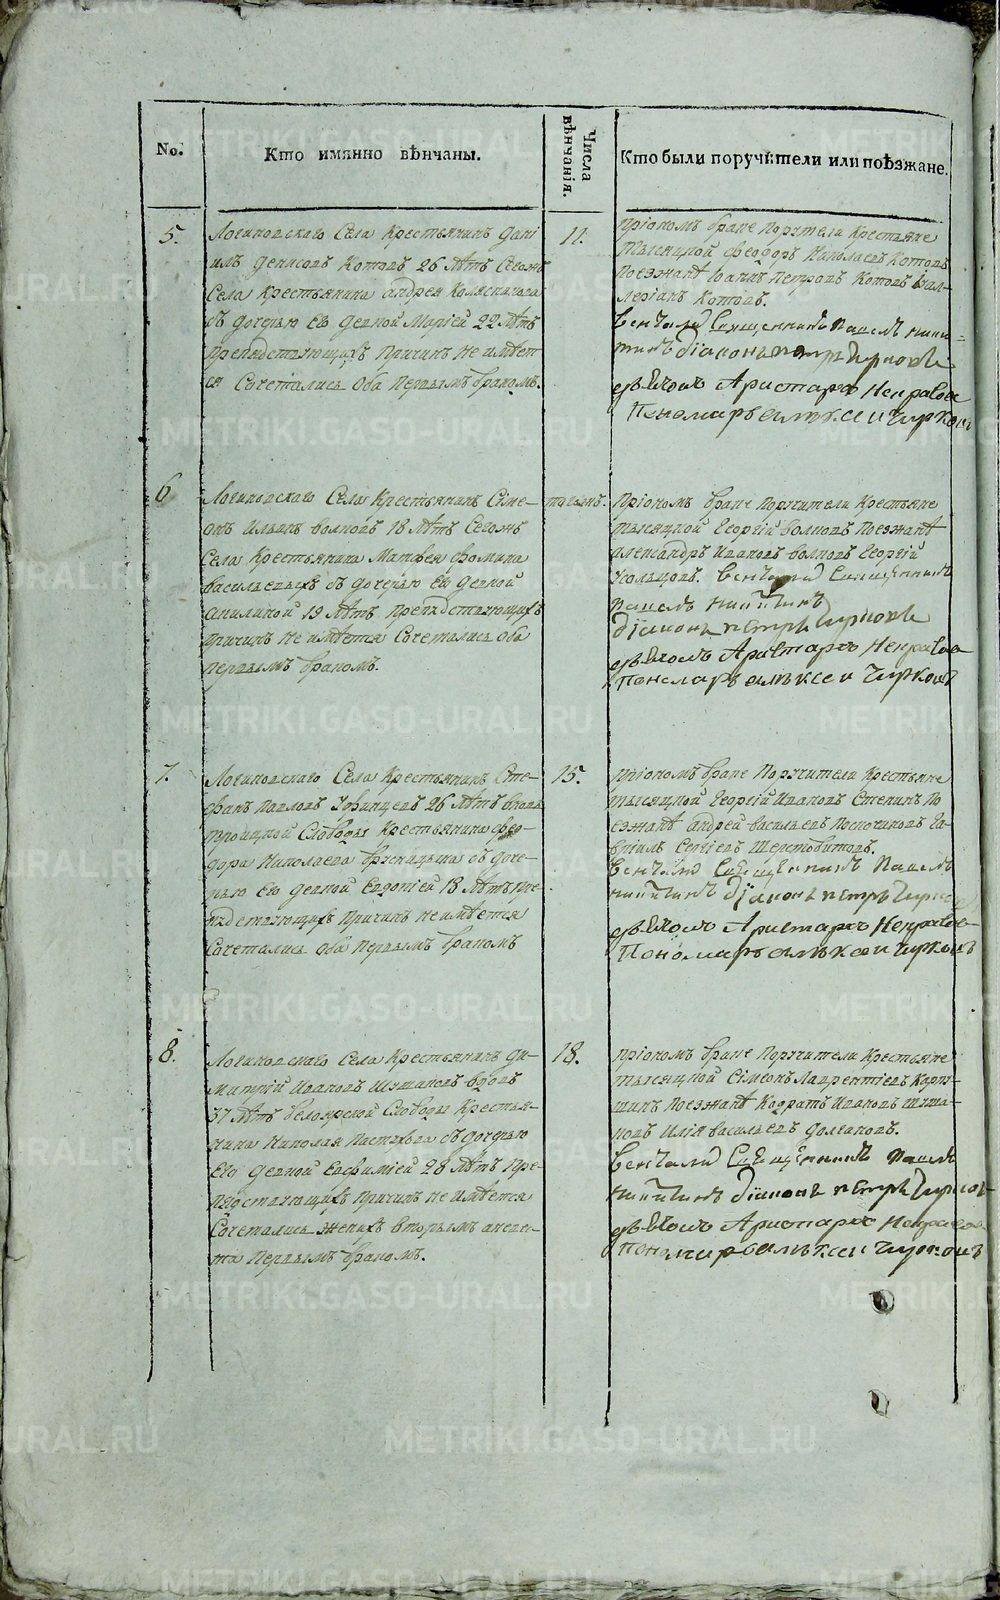 No.
Кто имянно вѣнчаны.
Числа вѣнчанія.
Кто были поручители или поѣзжане.
5.
Логиновскаго Села Крестьянинъ Дані
илъ Денисовъ Котовъ 26 лѣтъ Сегожъ
Села Крестьянина Андрея
съ дочерью Ево девкой Маріей 22 лѣтъ
препядствующихъ причинъ не имѣет
ся Сочетались оба первымъ бракомъ.
11.
При ономъ браке Поручители Крестьяне
тысяцкой Феодоръ Николаевъ Котовъ
Поезжанѣ Іоаннъ Петровъ Котовъ Вал-
леріанъ Котовъ.
венчали Священникъ Павелъ Ники-
тинъ Діаконъ Петръ Чирковъ
дьячокъ Аристархъ Некрасов
Пономарь Алѣксеи Чирковъ
6
Логиновскаго Села Крестьянинъ Симе-
онъ Ильинъ Волковъ 18 лѣтъ Сегожъ
Села Крестьянина Матфея Фомина
Васильевыхъ съ дочерью Ево девкой
Акилиной 19 лѣтъ препядствующихъ
причинъ не имѣется Сочетались оба
первымъ бракомъ.
При ономъ браке Поручители Крестьяне
тысяцкой Георгій Волковъ Поезжанѣ
Александръ Ивановъ Волковъ Георгій
Усольцовъ. венчали Священникъ
Павелъ Никитинъ
Діаконъ Петръ Чирковъ
дьячокъ Аристархъ Некрасов
Пономарь Алѣксеи Чирковъ
7.
Логиновскаго Села Крестьянинъ Сте-
фанъ Павловъ Уфинцевъ 26 лѣтъ
Слободы Крестьянина Фео-
дора Николаева Брусницына съ доче-
рью Ево девкой Евдокіей 18 лѣтъ пре-
пядствующихъ причинъ не имѣется
Сочетались оба первымъ бракомъ
15.
При ономъ браке Поручители Крестьяне
тысяцкой Георгій Ивановъ Степинъ По
езжанѣ Андрей Васильевъ Га-
вріилъ Сергіевъ Шерстобитовъ.
венчали Священникъ Павелъ
Никитинъ Діаконъ Петръ Чирков
дьячокъ Аристархъ Некрасов
Пономарь Алѣксеи Чирковъ
8.
Логиновскаго Села Крестьянинъ Ди-
митрій Ивановъ вдовъ
37 лѣтъ Белоярской Слободы Крестья-
нина Николая Пастухова съ дочерью
Ево девкой Евфиміей 28 лѣтъ пре-
пядствующихъ причинъ не имѣется
Сочетались женихъ вторымъ а невес-
та первымъ бракомъ.
18.
При ономъ браке Поручители Крестьяне
тысяцкой Сімеонъ Лаврентіевъ
Поезжанѣ Кодратъ Ивановъ
Илія Васильевъ Долгановъ.
венчали Священникъ Павелъ
Никитинъ Діаконъ Петръ Чирков
дьячокъ Аристархъ Некрасов
Пономарь Алѣксеи Чирковъ
METRIKI.GASO-URAL.RU